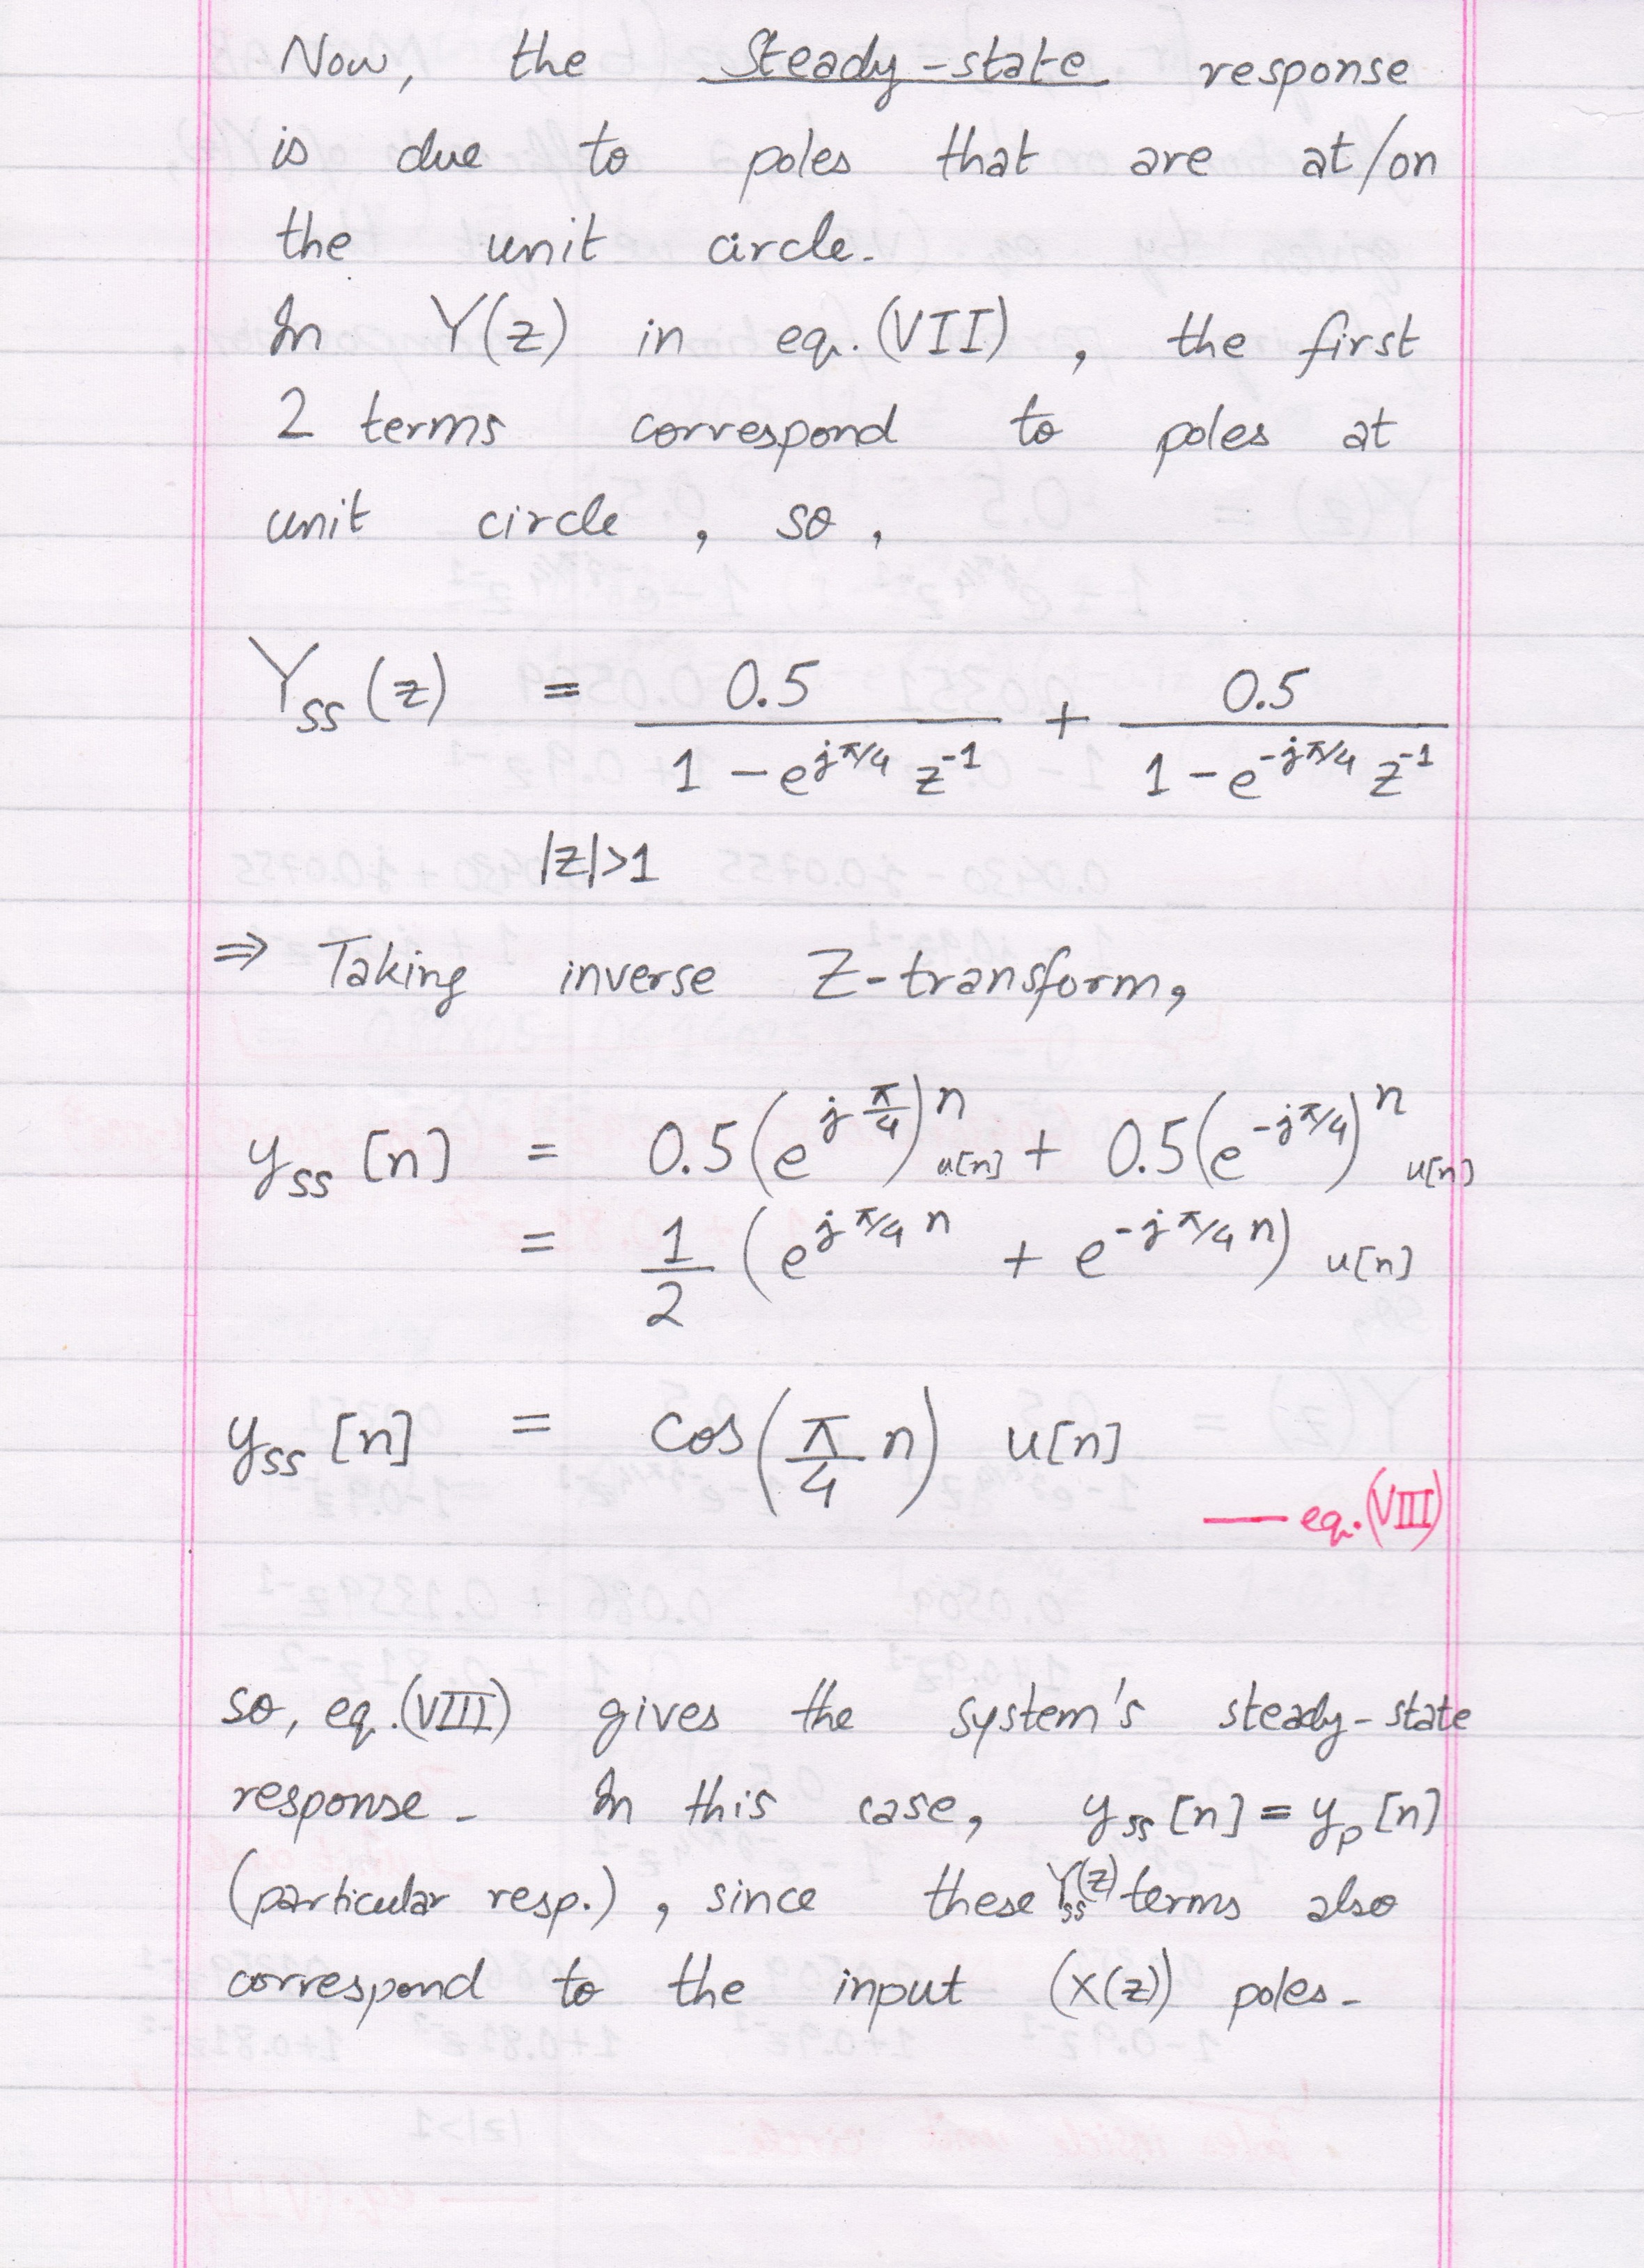 Now, the Steady-state response
is due to poles that are at/on
the unit circle.
In Y(z) in eq. (VII), the first
2 terms correspond to poles at
unit circle, so,
Yss(z) = 0.5 / (1 - e^{jπ/4} z^{-1}) + 0.5 / (1 - e^{-jπ/4} z^{-1})
|z|>1
⇒ Taking inverse Z-transform,
yss[n] = 0.5(e^{jπ/4})^n u[n] + 0.5(e^{-jπ/4})^n u[n]
= 1/2 (e^{jπ/4 n} + e^{-jπ/4 n}) u[n]
yss[n] = cos(π/4 n) u[n]
— eq. (VIII)
so, eq. (VIII) gives the system's steady-state
response. In this case, yss[n] = yp[n]
(particular resp.), since these Yss(z) terms also
correspond to the input (X(z)) poles.